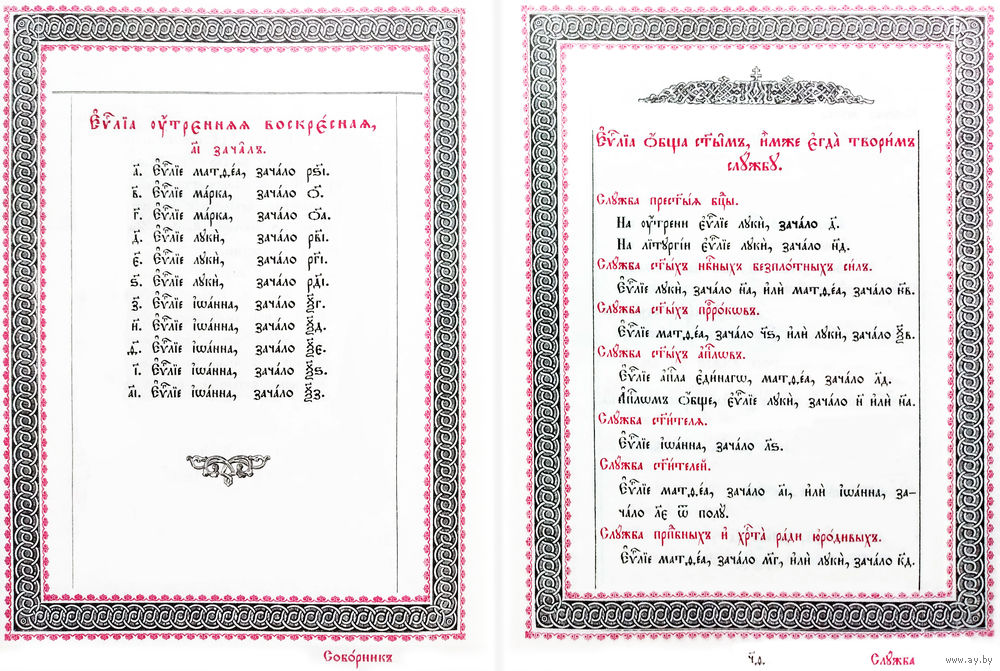 Є҆ѵⷢ҇лїа ᲂу҆́тренняѧ воскре́снаѧ,
а҃і зача́лъ.
а҃. Є҆ѵⷢ҇лїе матѳе́а, зача́ло рѕ҃і.
в҃. Є҆ѵⷢ҇лїе ма́рка, зача́ло ѻ҃.
г҃. Є҆ѵⷢ҇лїе ма́рка, зача́ло ѻ҃а.
д҃. Є҆ѵⷢ҇лїе лꙋкѝ, зача́ло рв҃і.
є҃. Є҆ѵⷢ҇лїе лꙋкѝ, зача́ло рг҃і.
ѕ҃. Є҆ѵⷢ҇лїе лꙋкѝ, зача́ло рд҃і.
з҃. Є҆ѵⷢ҇лїе і҆ѡа́нна, зача́ло ѯ҃г.
и҃. Є҆ѵⷢ҇лїе і҆ѡа́нна, зача́ло ѯ҃д.
ѳ҃. Є҆ѵⷢ҇лїе і҆ѡа́нна, зача́ло ѯ҃є.
і҃. Є҆ѵⷢ҇лїе і҆ѡа́нна, зача́ло ѯ҃ѕ.
а҃і. Є҆ѵⷢ҇лїе і҆ѡа́нна, зача́ло ѯ҃з.
Собо́рникъ
Є҆ѵⷢ҇лїа ѻ҆́бщаѧ ст҃ы̑мъ, и҆̀мже є҆гда̀ твори́мъ
слꙋ́жбꙋ.
Слꙋ́жба прест҃ы́ѧ бцⷣы.
На ᲂу҆́трени є҆ѵⷢ҇лїе лꙋкѝ, зача́ло д҃.
На лїтꙋргі́и є҆ѵⷢ҇лїе лꙋкѝ, зача́ло н҃д.
Слꙋ́жба ст҃ы́хъ нбⷭ҇ныхъ безпло́тныхъ си́лъ.
Є҆ѵⷢ҇лїе лꙋкѝ, зача́ло н҃а, и҆лѝ матѳе́а, зача́ло н҃в.
Слꙋ́жба ст҃ы́хъ прⷪ҇ро́кѡвъ.
Є҆ѵⷢ҇лїе матѳе́а, зача́ло ч҃ѕ, и҆лѝ лꙋкѝ, зача́ло ѯ҃в.
Слꙋ́жба ст҃ы́хъ а҆пⷭ҇лѡвъ.
Є҆ѵⷢ҇лїе а҆пⷭ҇ла є҆ди́нагѡ, матѳе́а, зача́ло л҃д.
А҆пⷭ҇лѡмъ ѻ҆́бще, є҆ѵⷢ҇лїе лꙋкѝ, зача́ло н҃ и҆лѝ н҃а.
Слꙋ́жба ст҃и́телѧ.
Є҆ѵⷢ҇лїе і҆ѡа́нна, зача́ло л҃ѕ.
Слꙋ́жба ст҃и́телей.
Є҆ѵⷢ҇лїе матѳе́а, зача́ло а҃і, и҆лѝ і҆ѡа́нна, за-
ча́ло л҃є ѿ полꙋ̀.
Слꙋ́жба прпⷣбныхъ и҆ хрⷭ҇та̀ ра́ди ю҆ро́дивыхъ.
Є҆ѵⷢ҇лїе матѳе́а, зача́ло м҃г, и҆лѝ лꙋкѝ, зача́ло к҃д.
ч҃ѳ.
Слꙋ́жба
www.ay.by